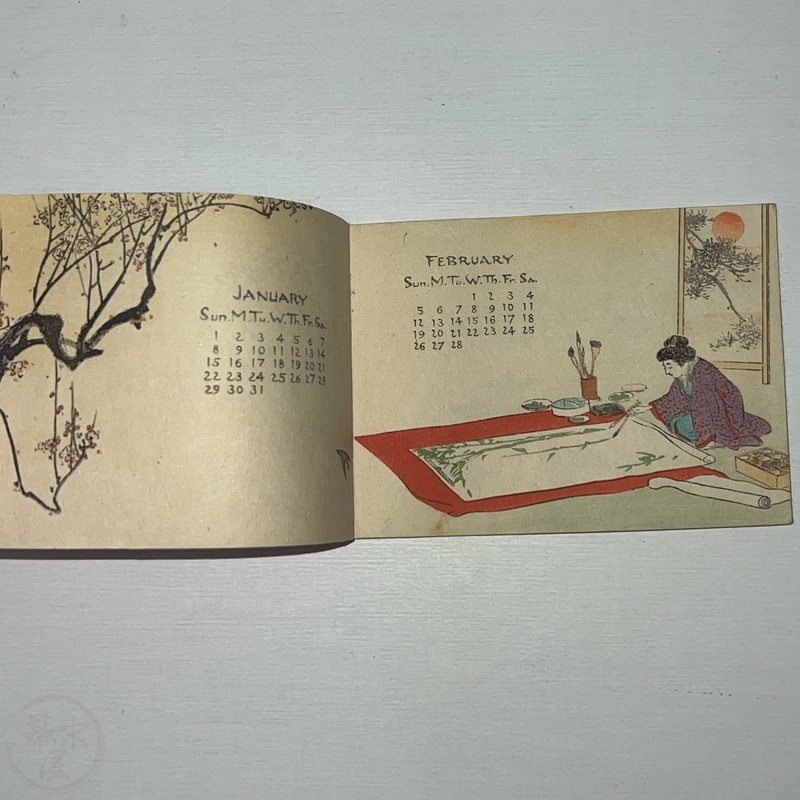 JANUARY
Sun. M. Tu. W. Th. Fr. Sa.
1 2 3 4 5 6 7
8 9 10 11 12 13 14
15 16 17 18 19 20 21
22 23 24 25 26 27 28
29 30 31
FEBRUARY
Sun. M. Tu. W. Th. Fr. Sa.
1 2 3 4
5 6 7 8 9 10 11
12 13 14 15 16 17 18
19 20 21 22 23 24 25
26 27 28